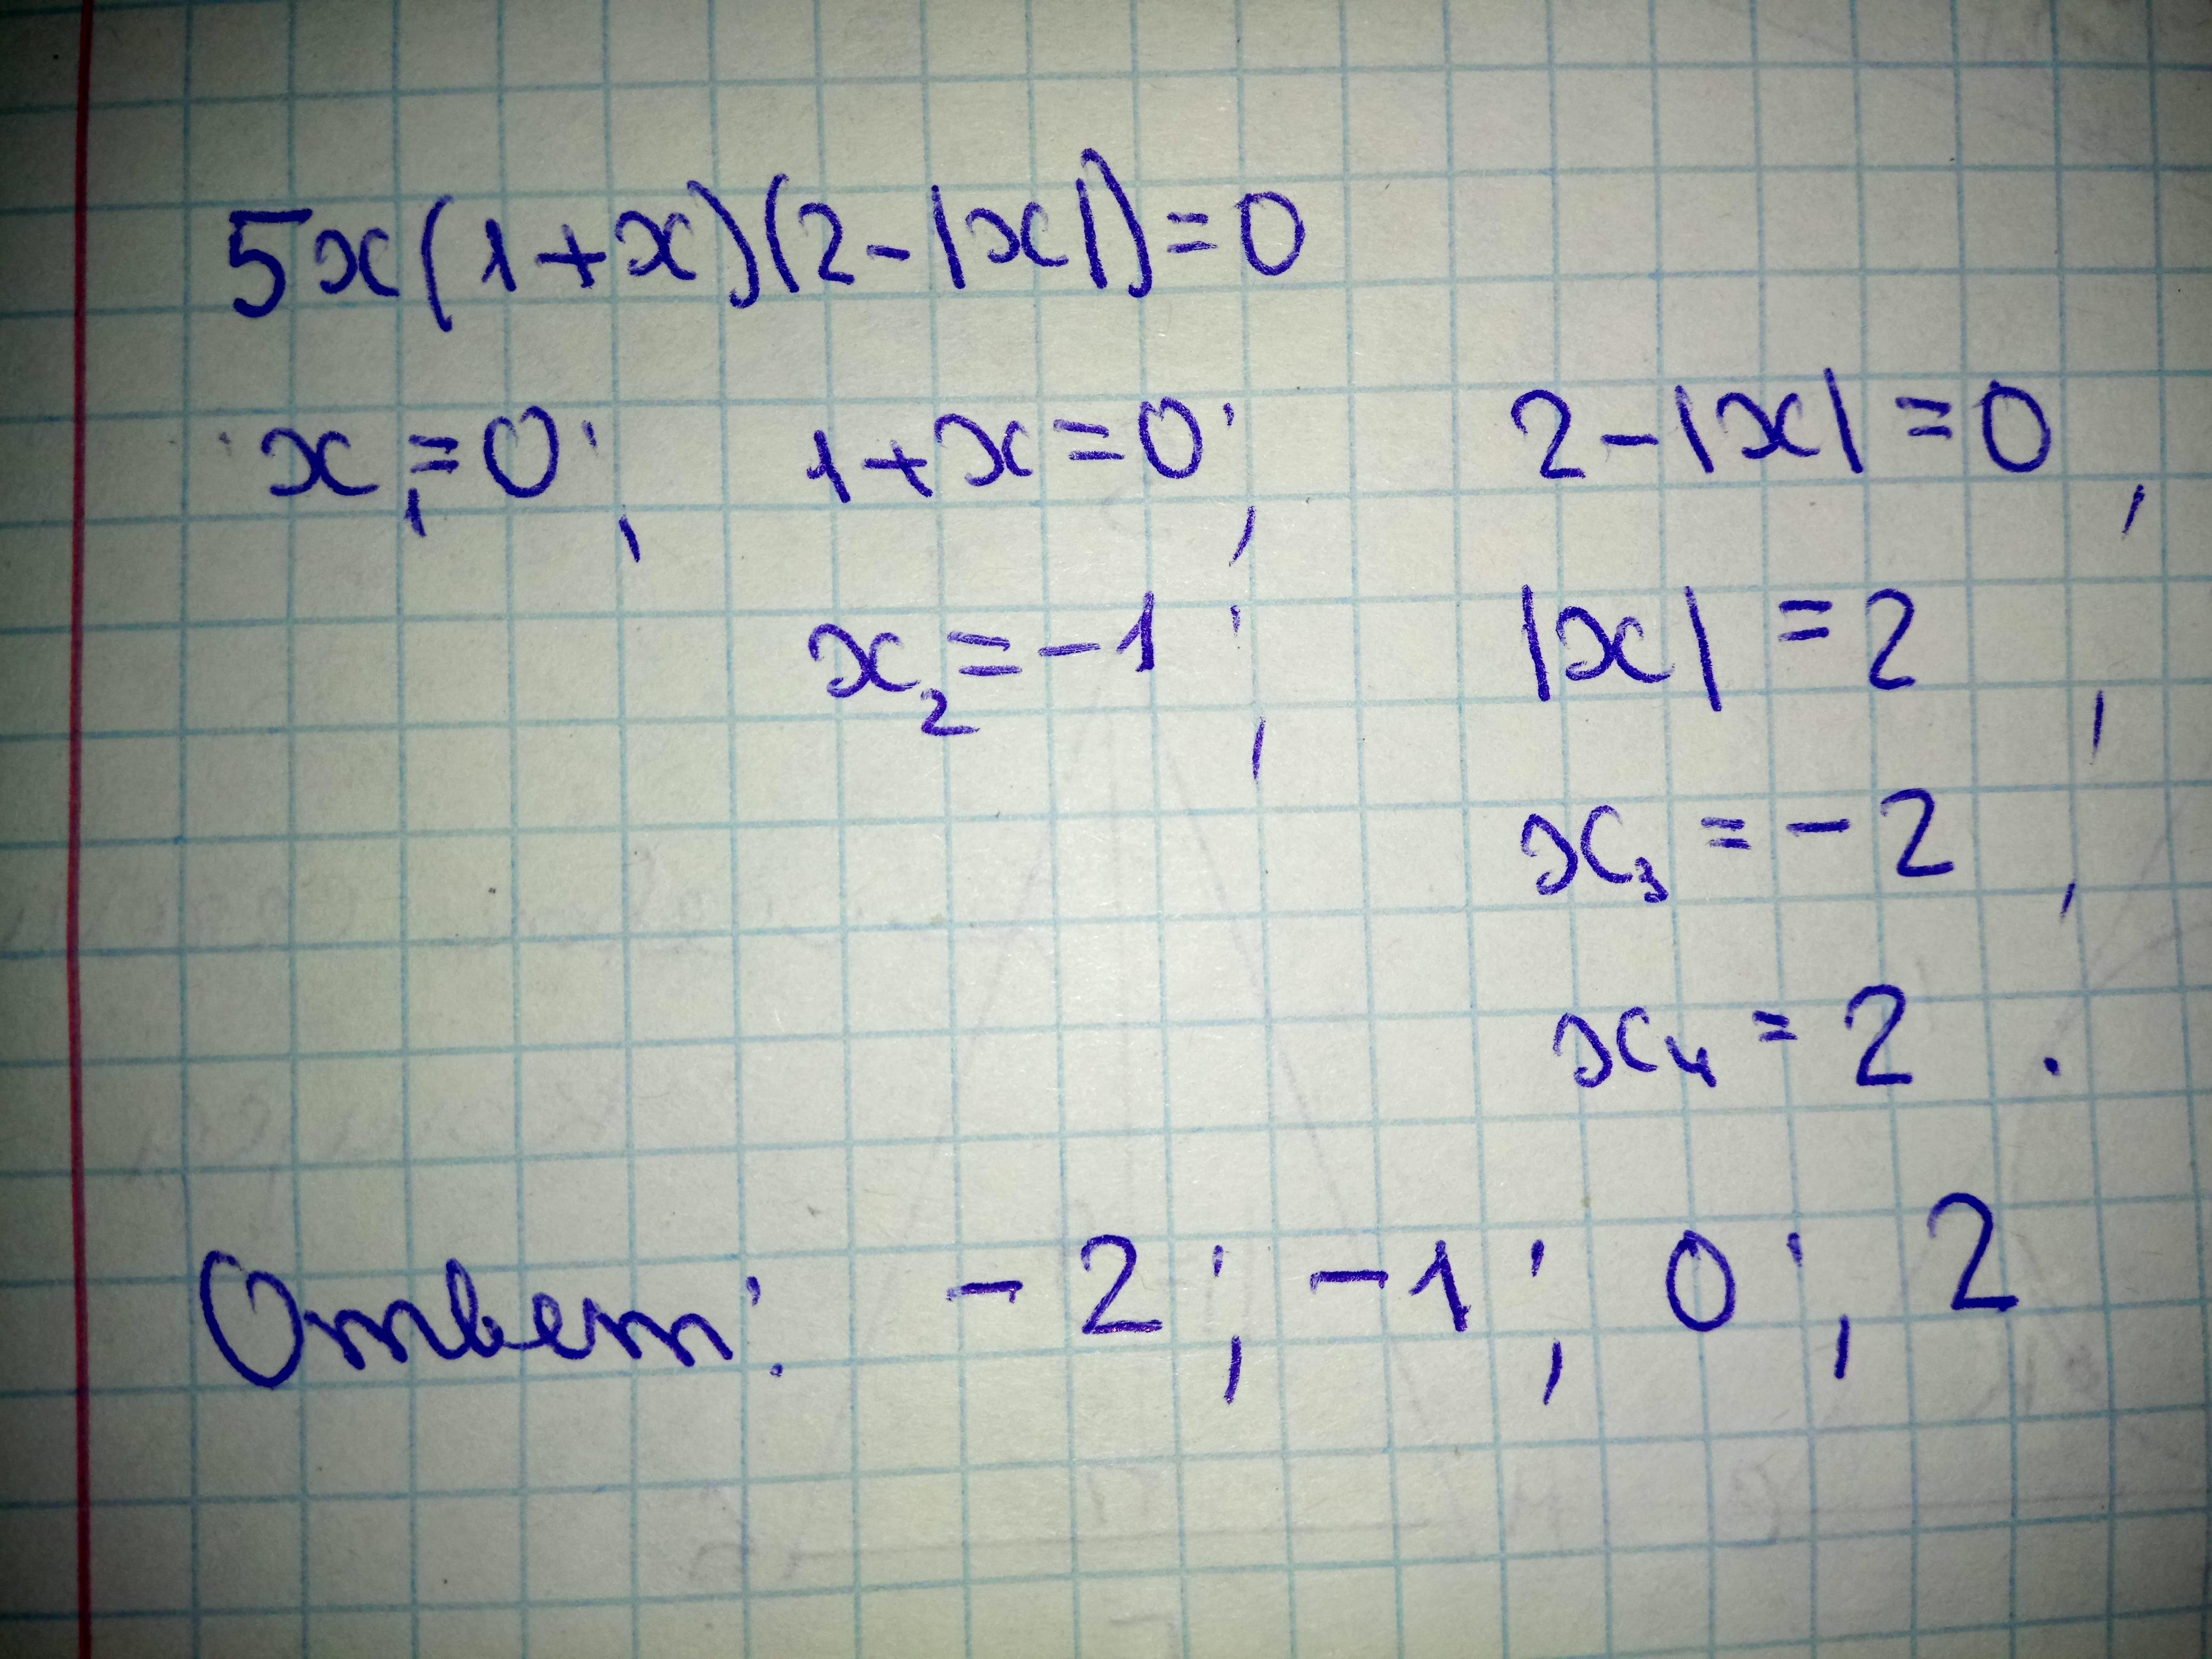 5x(1+x)(2-|x|)=0
x₁=0; 1+x=0; 2-|x|=0,
x₂=-1; |x|=2,
x₃=-2,
x₄=2.
Ответ: -2; -1; 0; 2